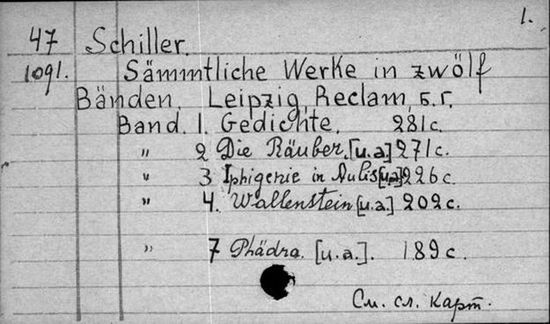 1.
47 Schiller.
1091. Sämmtliche Werke in zwölf
Bänden. Leipzig, Reclam, б.г.
Band. 1. Gedichte. 281 с.
" 2 Die Räuber. [u.a] 271 с.
" 3 Iphigenie in Aulis [u.a] 226 с.
" 4. Wallenstein [u.a.] 202 с.
" 7 Phädra. [u.a.]. 189 с.
См. сл. карт.